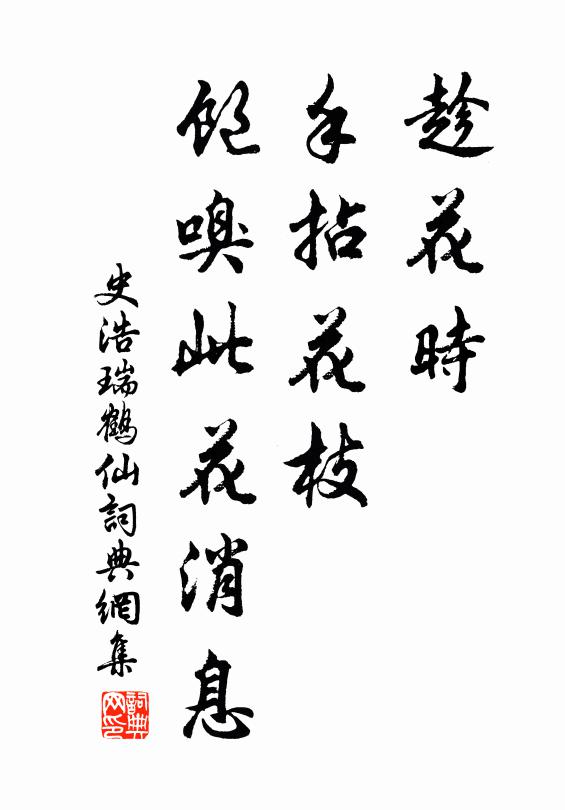 趁花時
手拈花枝
飽嗅此花消息
史浩瑞鶴仙詞典網集
詞典网印